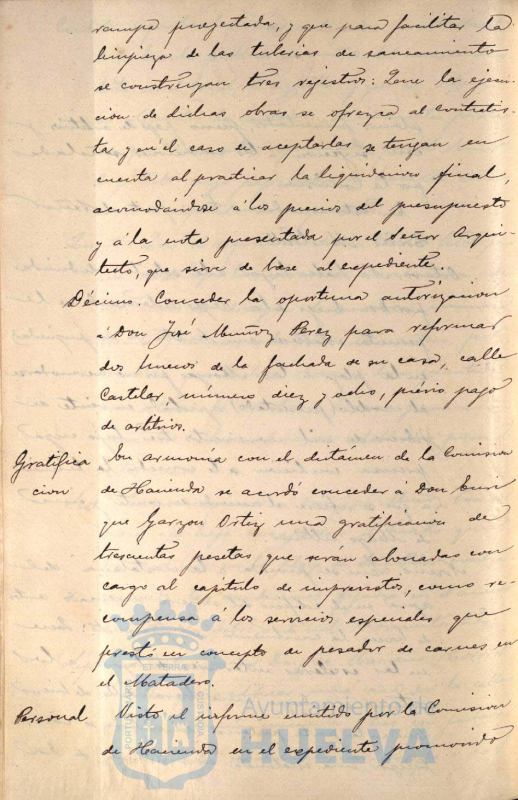 rampa proyectada, y que para facilitar la
limpieza de las tuberias de saneamiento
se construyan tres registros: Que la ejecu-
cion de dichas obras se ofrezca al contratis-
ta y en el caso de aceptarlas se tengan en
cuenta al practicar la liquidacion final,
acomodándose á los precios del presupuesto
y á la nota presentada por el Señor Arqui-
tecto, que sirve de base al expediente.
Décimo. Conceder la oportuna autorizacion
á Don José Muñoz Perez para reformar
dos huecos de la fachada de su casa, calle
Castelar, número diez y ocho, prévio pago
de arbitrios.
Gratifica
cion
En armonía con el dictámen de la Comision
de Hacienda se acordó conceder á Don Enri
que Garzon Ortiz una gratificacion de
trescientas pesetas que serán abonadas con
cargo al capitulo de imprevistos, como re-
compensa á los servicios especiales que
prestó en concepto de pesador de carnes en
el Matadero.
Personal
Visto el informe emitido por la Comision
de Hacienda en el expediente promovido
ET TERRÆ
PORTUS MAR
CUSTODIA
Ayuntamiento de
HUELVA